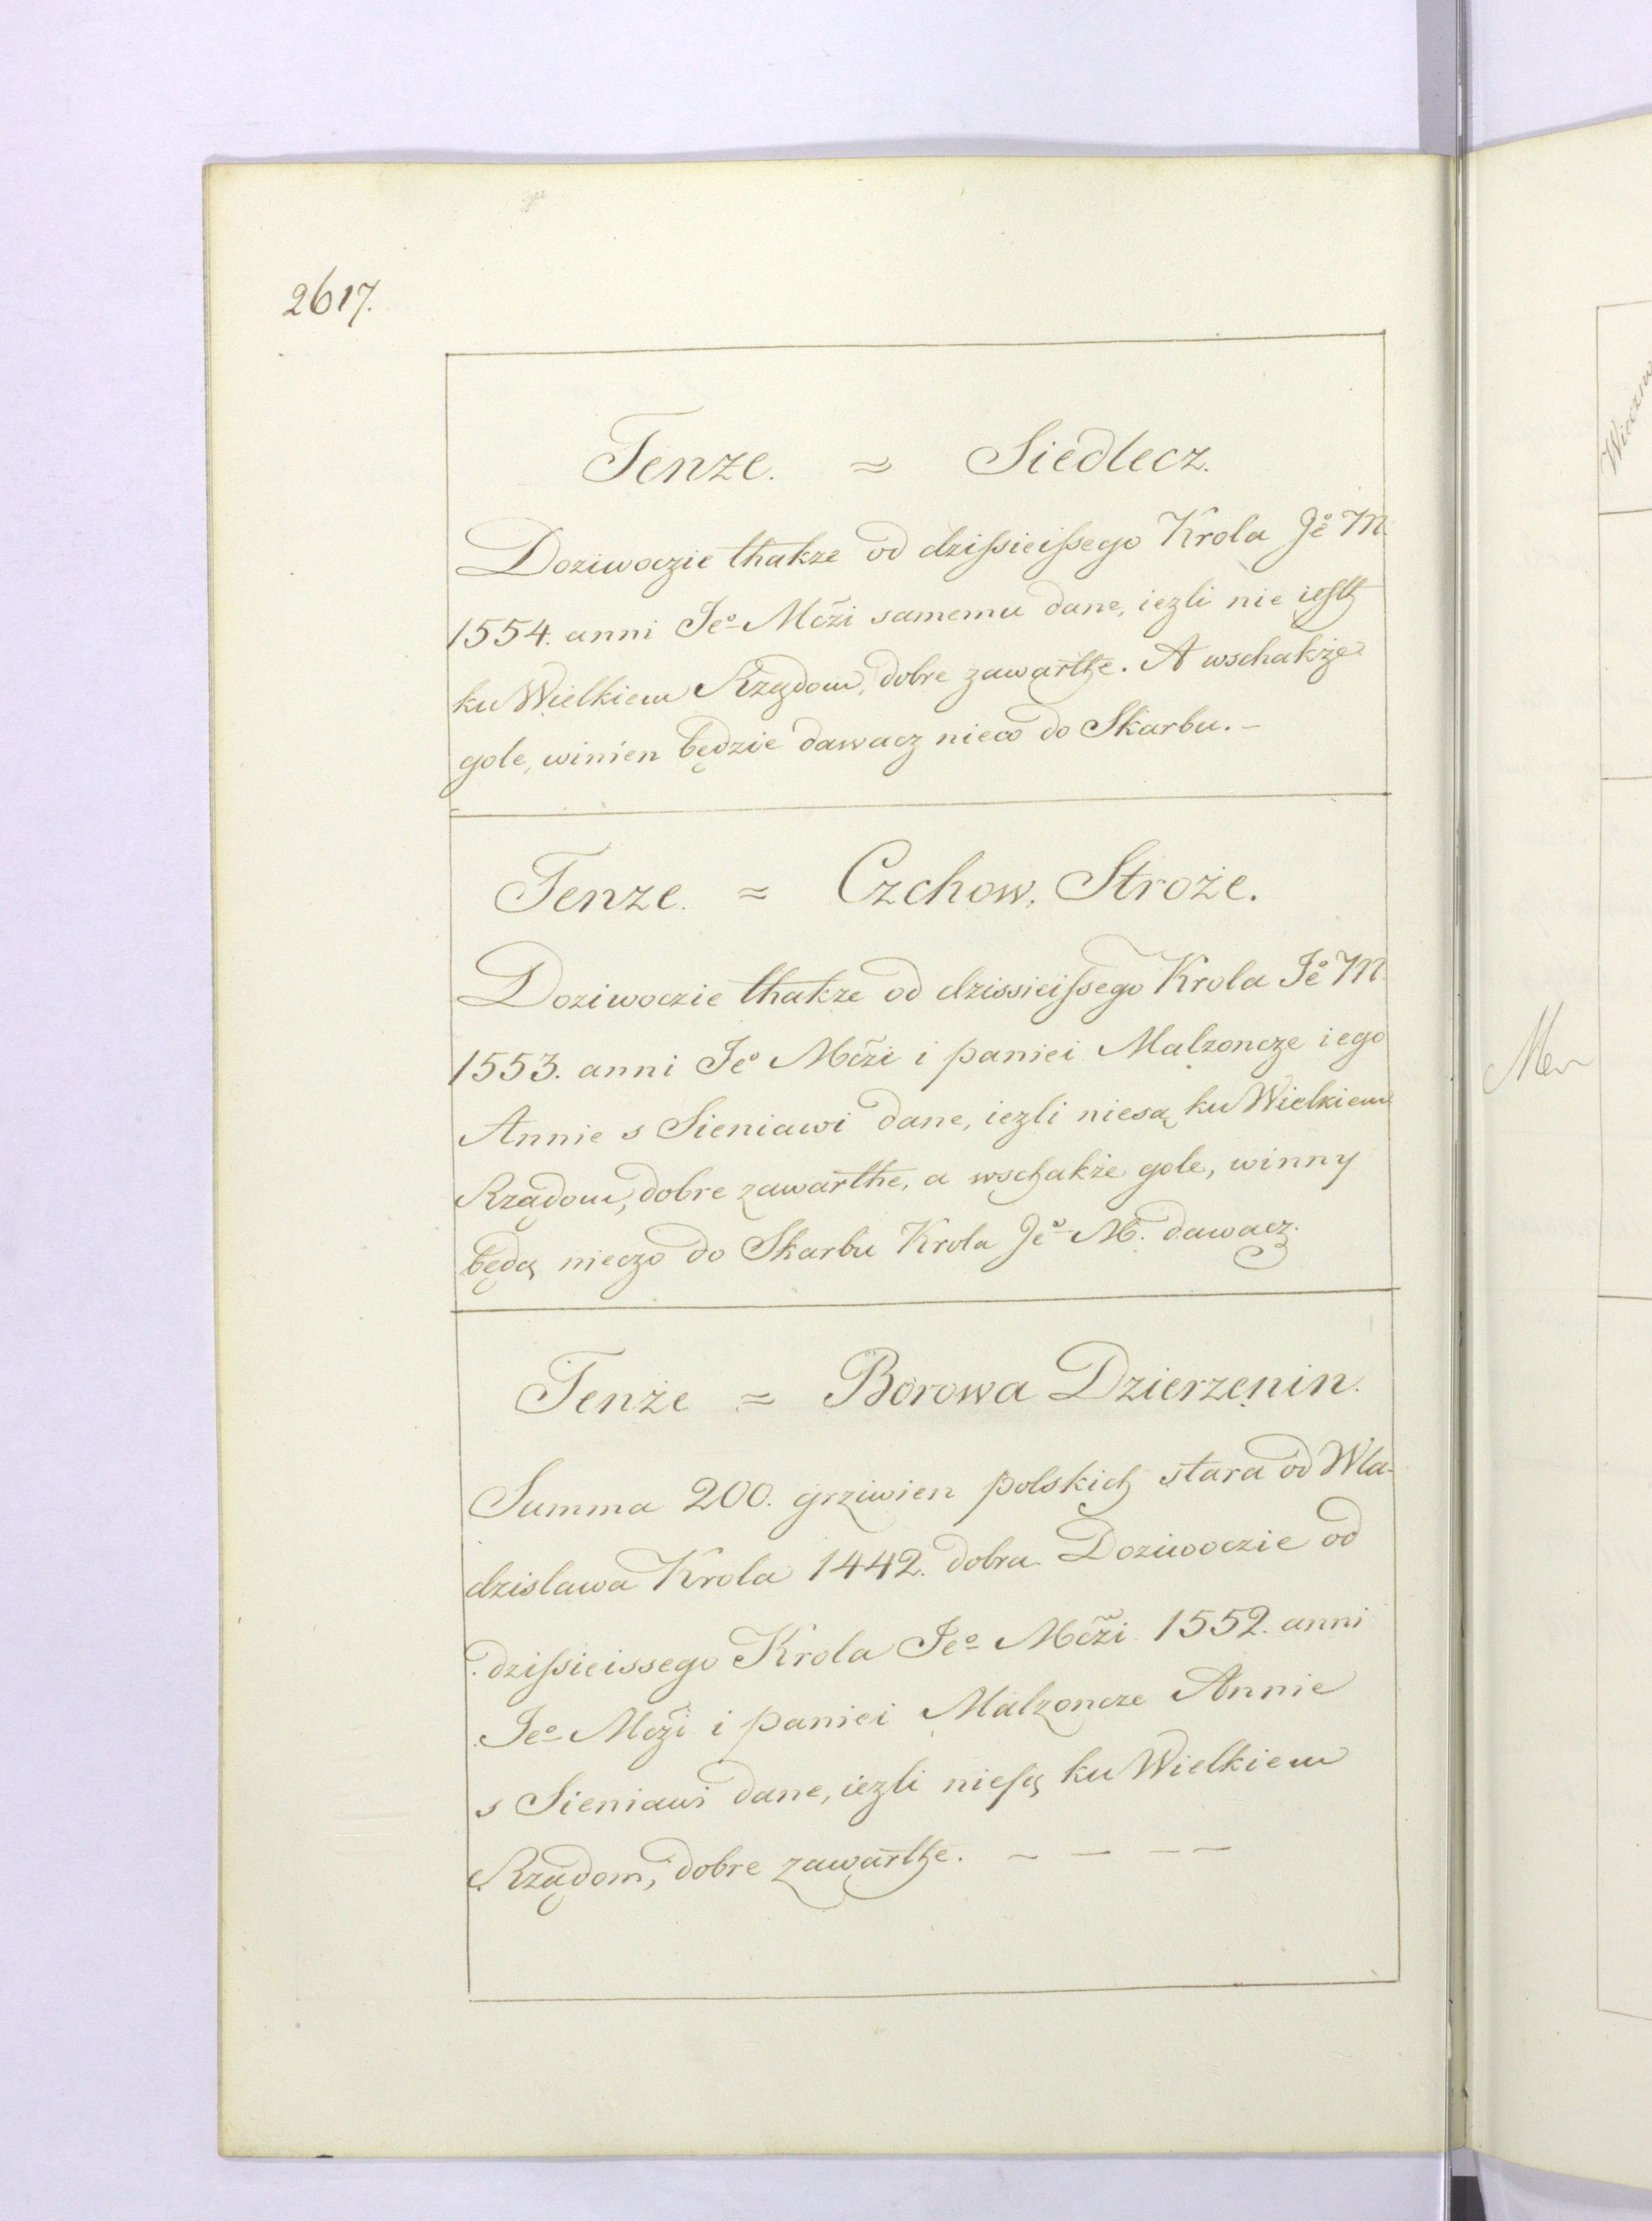 2617.
Tenze. = Siedlecz.
Doziwoczie thakze od dzissieissego Krola Je⁰ M.
1554. anni Je⁰ Mczi samemu dane, iezli nie iesth
ku Wielkiem Rządom, dobre zawarthe. A wschakże
gole, winien będzie dawacz nieco do Skarbu. –
Tenze. = Czchow, Stroże.
Doziwoczie thakze od dzissieissego Krola Je⁰ M.
1553. anni Je⁰ Mczi i paniei Malzoncze iego
Annie s Sieniawi dane, iezli niesą ku Wielkiem
Rządom, dobre zawarthe, a wschakże gole, winny
będą nieczo do Skarbu Krola Je⁰ M. dawacz.
Tenże = Borowa Dzierzenin.
Summa 200. grziwien polskich stara od Wla-
dzislawa Krola 1442. dobra. Doziwoczie od
dzissieissego Krola Je⁰ Mczi 1552. anni
Je⁰ Mczi i paniei Malzoncze Annie
s Sieniawi dane, iezli niesą ku Wielkiem
Rządom, dobre zawarthe. – – – –